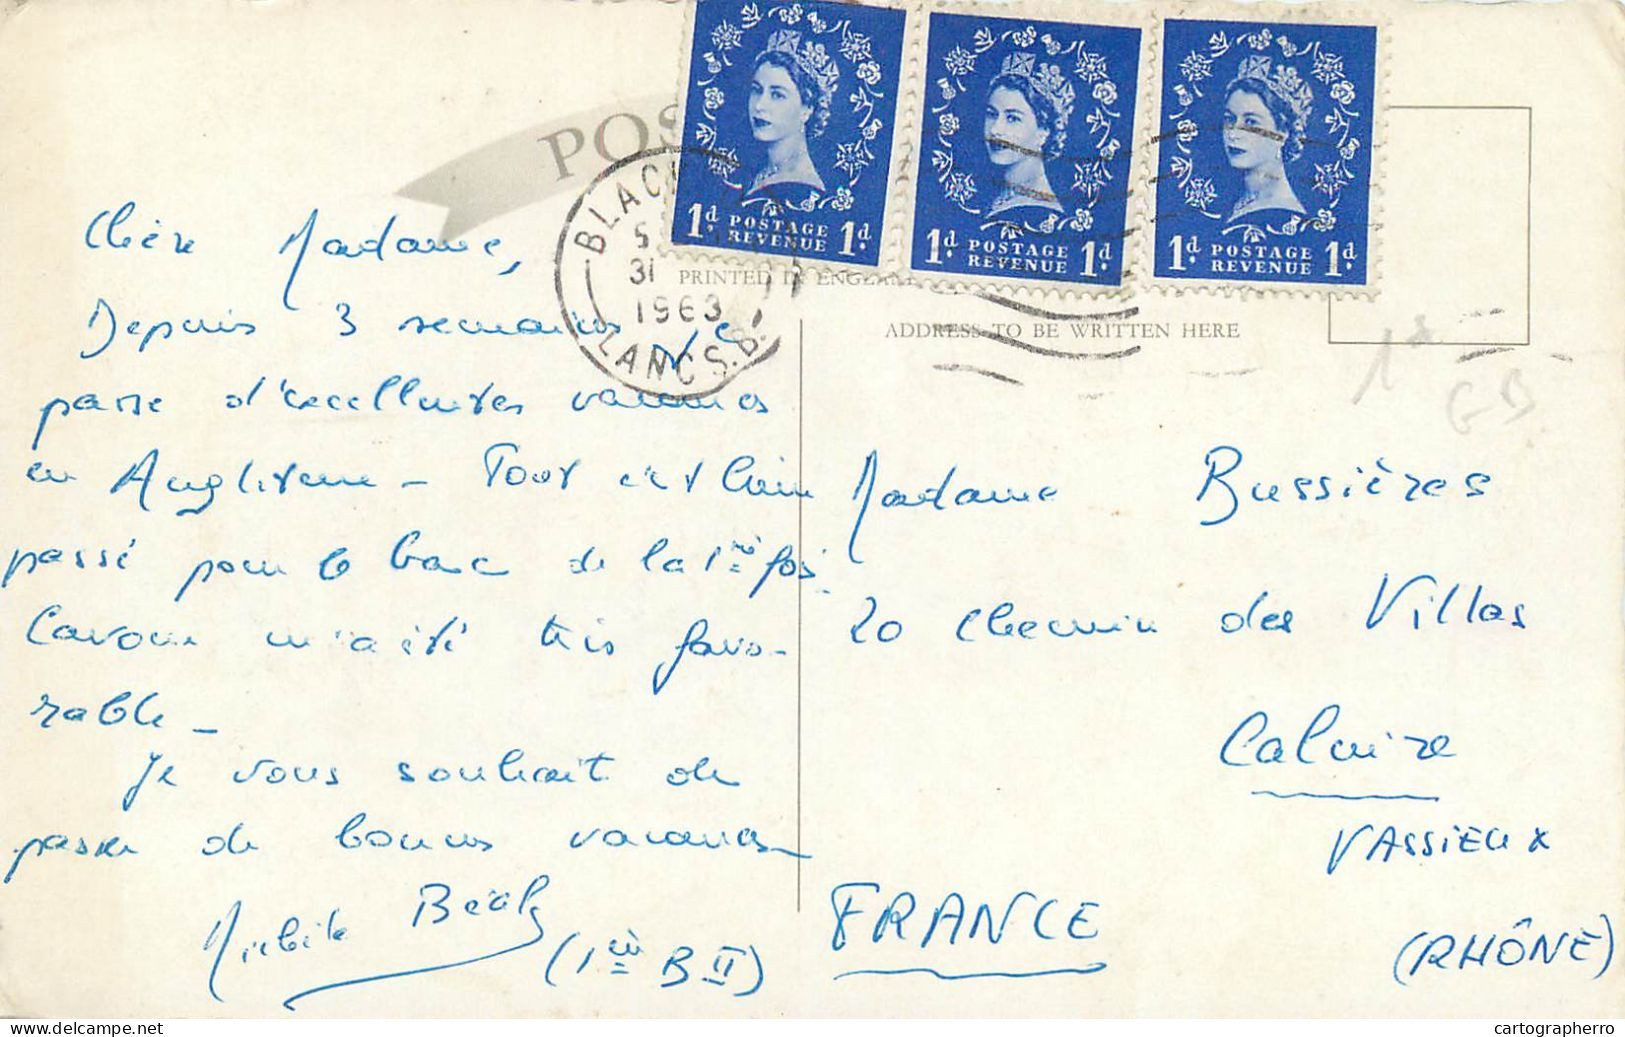 POS
1d POSTAGE REVENUE 1d
1d POSTAGE REVENUE 1d
1d POSTAGE REVENUE 1d
BLAC
5
31
1963
LANCS. B.
PRINTED IN ENGLAN
ADDRESS TO BE WRITTEN HERE
1d
GB
Chère Madame,
Depuis 3 semaines je
passe d'excellentes vacances
en Angleterre - Tout s'est bien
passé pour le bac de la 1ère fois.
L'avoue m'a été très favo-
rable -
Je vous souhait de
passer de bonnes vacances
(1ère B II)
Madame Bussières
20 chemin des Villas
Caluire
VASSIEUX
FRANCE
(RHÔNE)
cartographerro